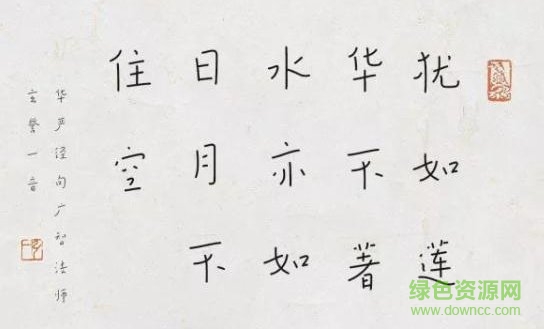 犹如莲
华不著
水亦如
日月不
住空
华严经句广智法师
一音
绿色资源网
www.downcc.com